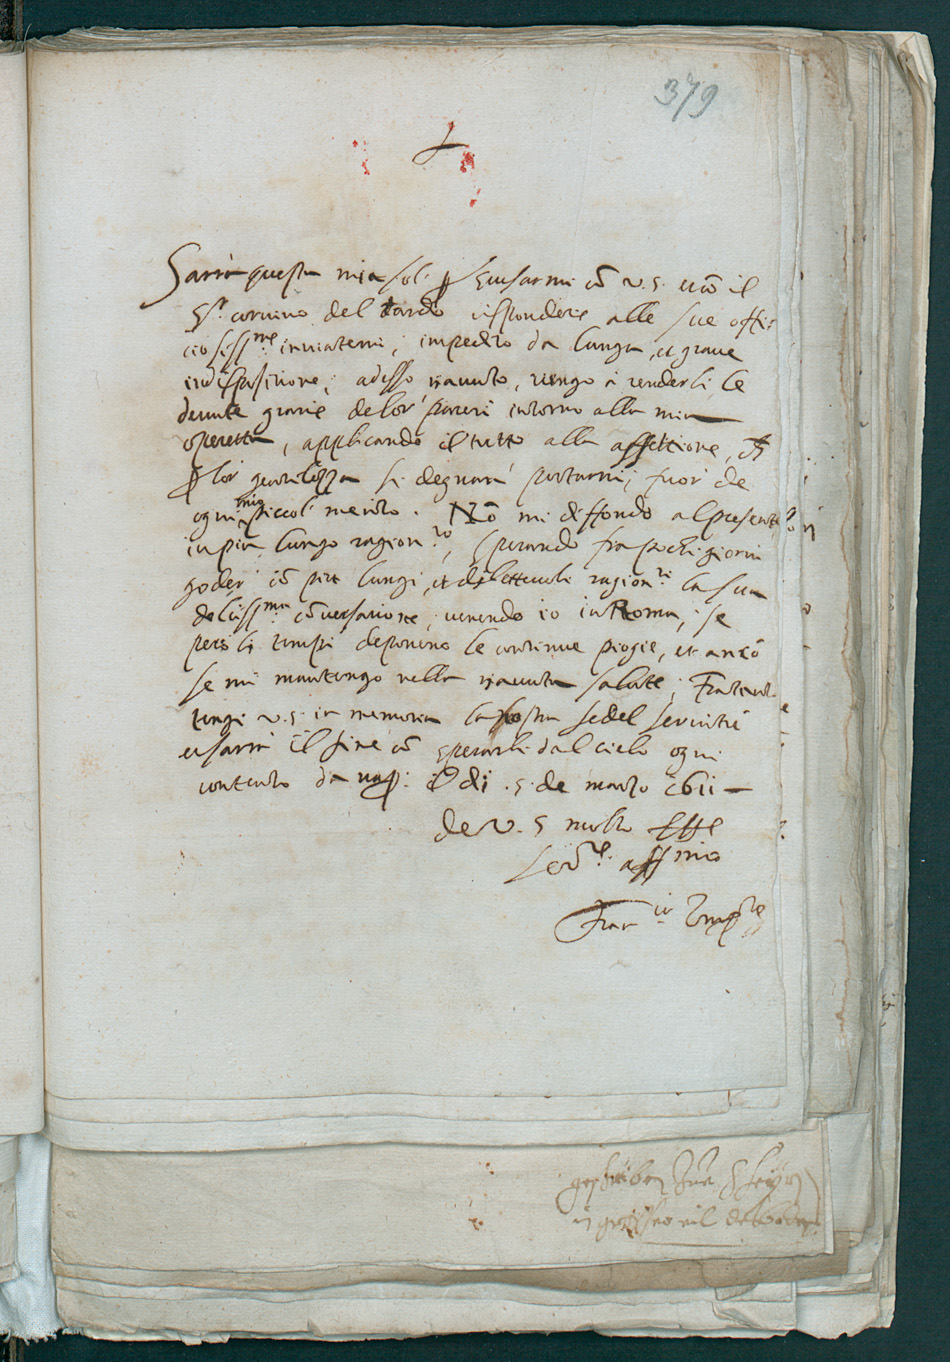 379
Sarrà questa mia sol' p scusarmi cō v. s. et cō il
Sr. corvino del tardo rispondere alle sue offi:
ciosissme inviatemi, impedito da lunga, et grave
indispositione; adesso riavuto, vengo à renderli le
devute gratie delor' pareri intorno alla mia
operetta, applicando il tutto alla affettione, ch
p lor gentilezza si degnaro' portarmi, fuor de
ogni mio piccol' merito. Nō mi diffondo al presente
in piu lungo ragionto, sperando fra pochi giorni
goder' cō piu lungi, et dilettevoli ragionti la sua
dolcissma cōversatione, venendo io in Roma, se
però li tempi deponino le continue piogie, et ancō
se mi mantengo nella riavuta salute; Fratant
tenga v. s. in memoria la nostra fedel servitù
e sarrà il fine cō pregarli dal cielo ogni
contento da nap: di .5. de marzo 1611
de v. s. molto
servre affmo
Franco